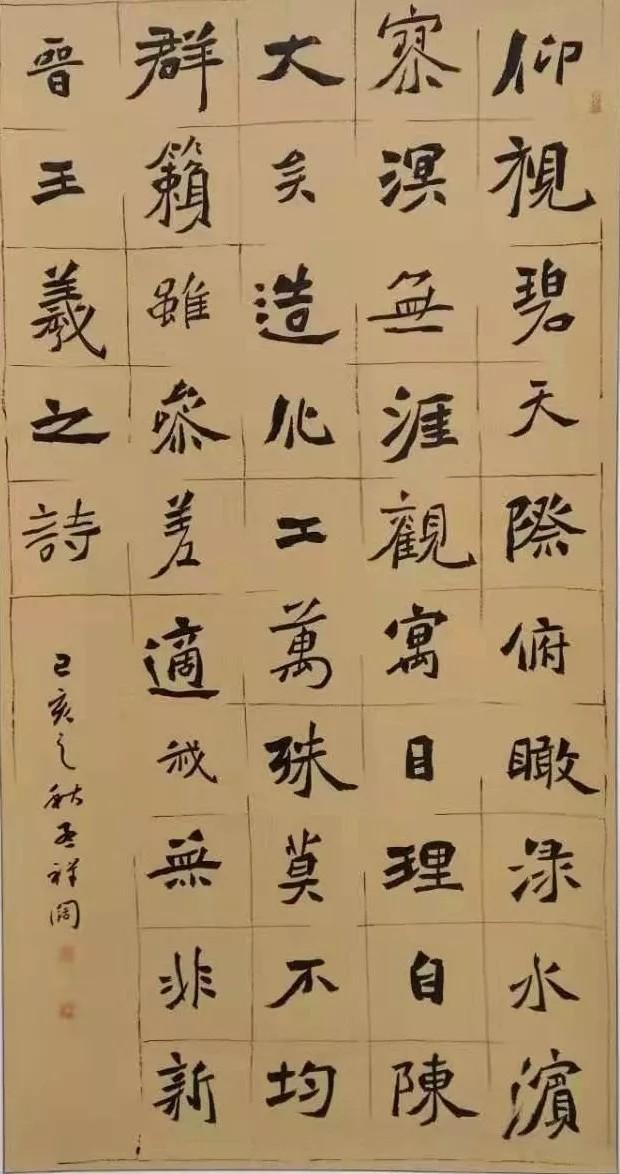 仰視碧天際俯瞰渌水濱
寥溟無涯觀寓目理自陳
大矣造化工萬殊莫不均
群籟雖參差適我無非新
晉王羲之詩
己亥之秋孟祥